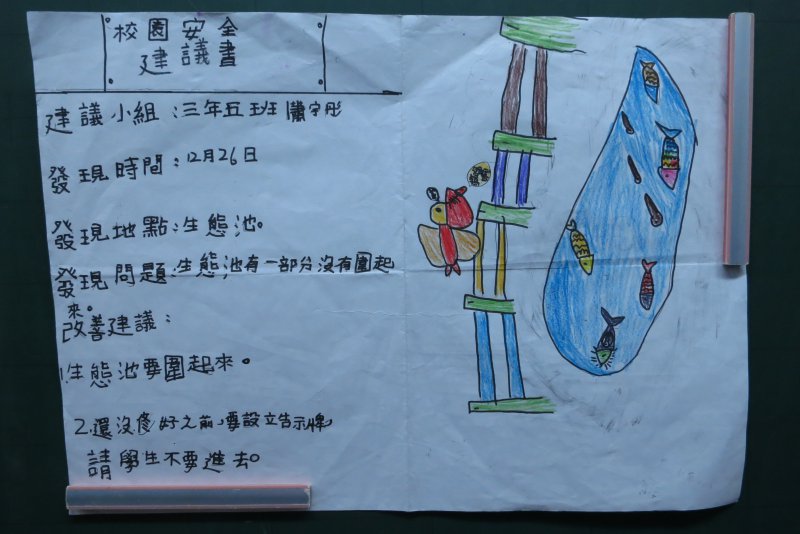 校園安全
建議書
建議小組：三年五班 蕭宇彤
發現時間：12月26日
發現地點：生態池。
發現問題：生態池有一部分沒有圍起
來。
改善建議：
1.生態池要圍起來。
2.還沒修好之前，要設立告示牌，
請學生不要進去。